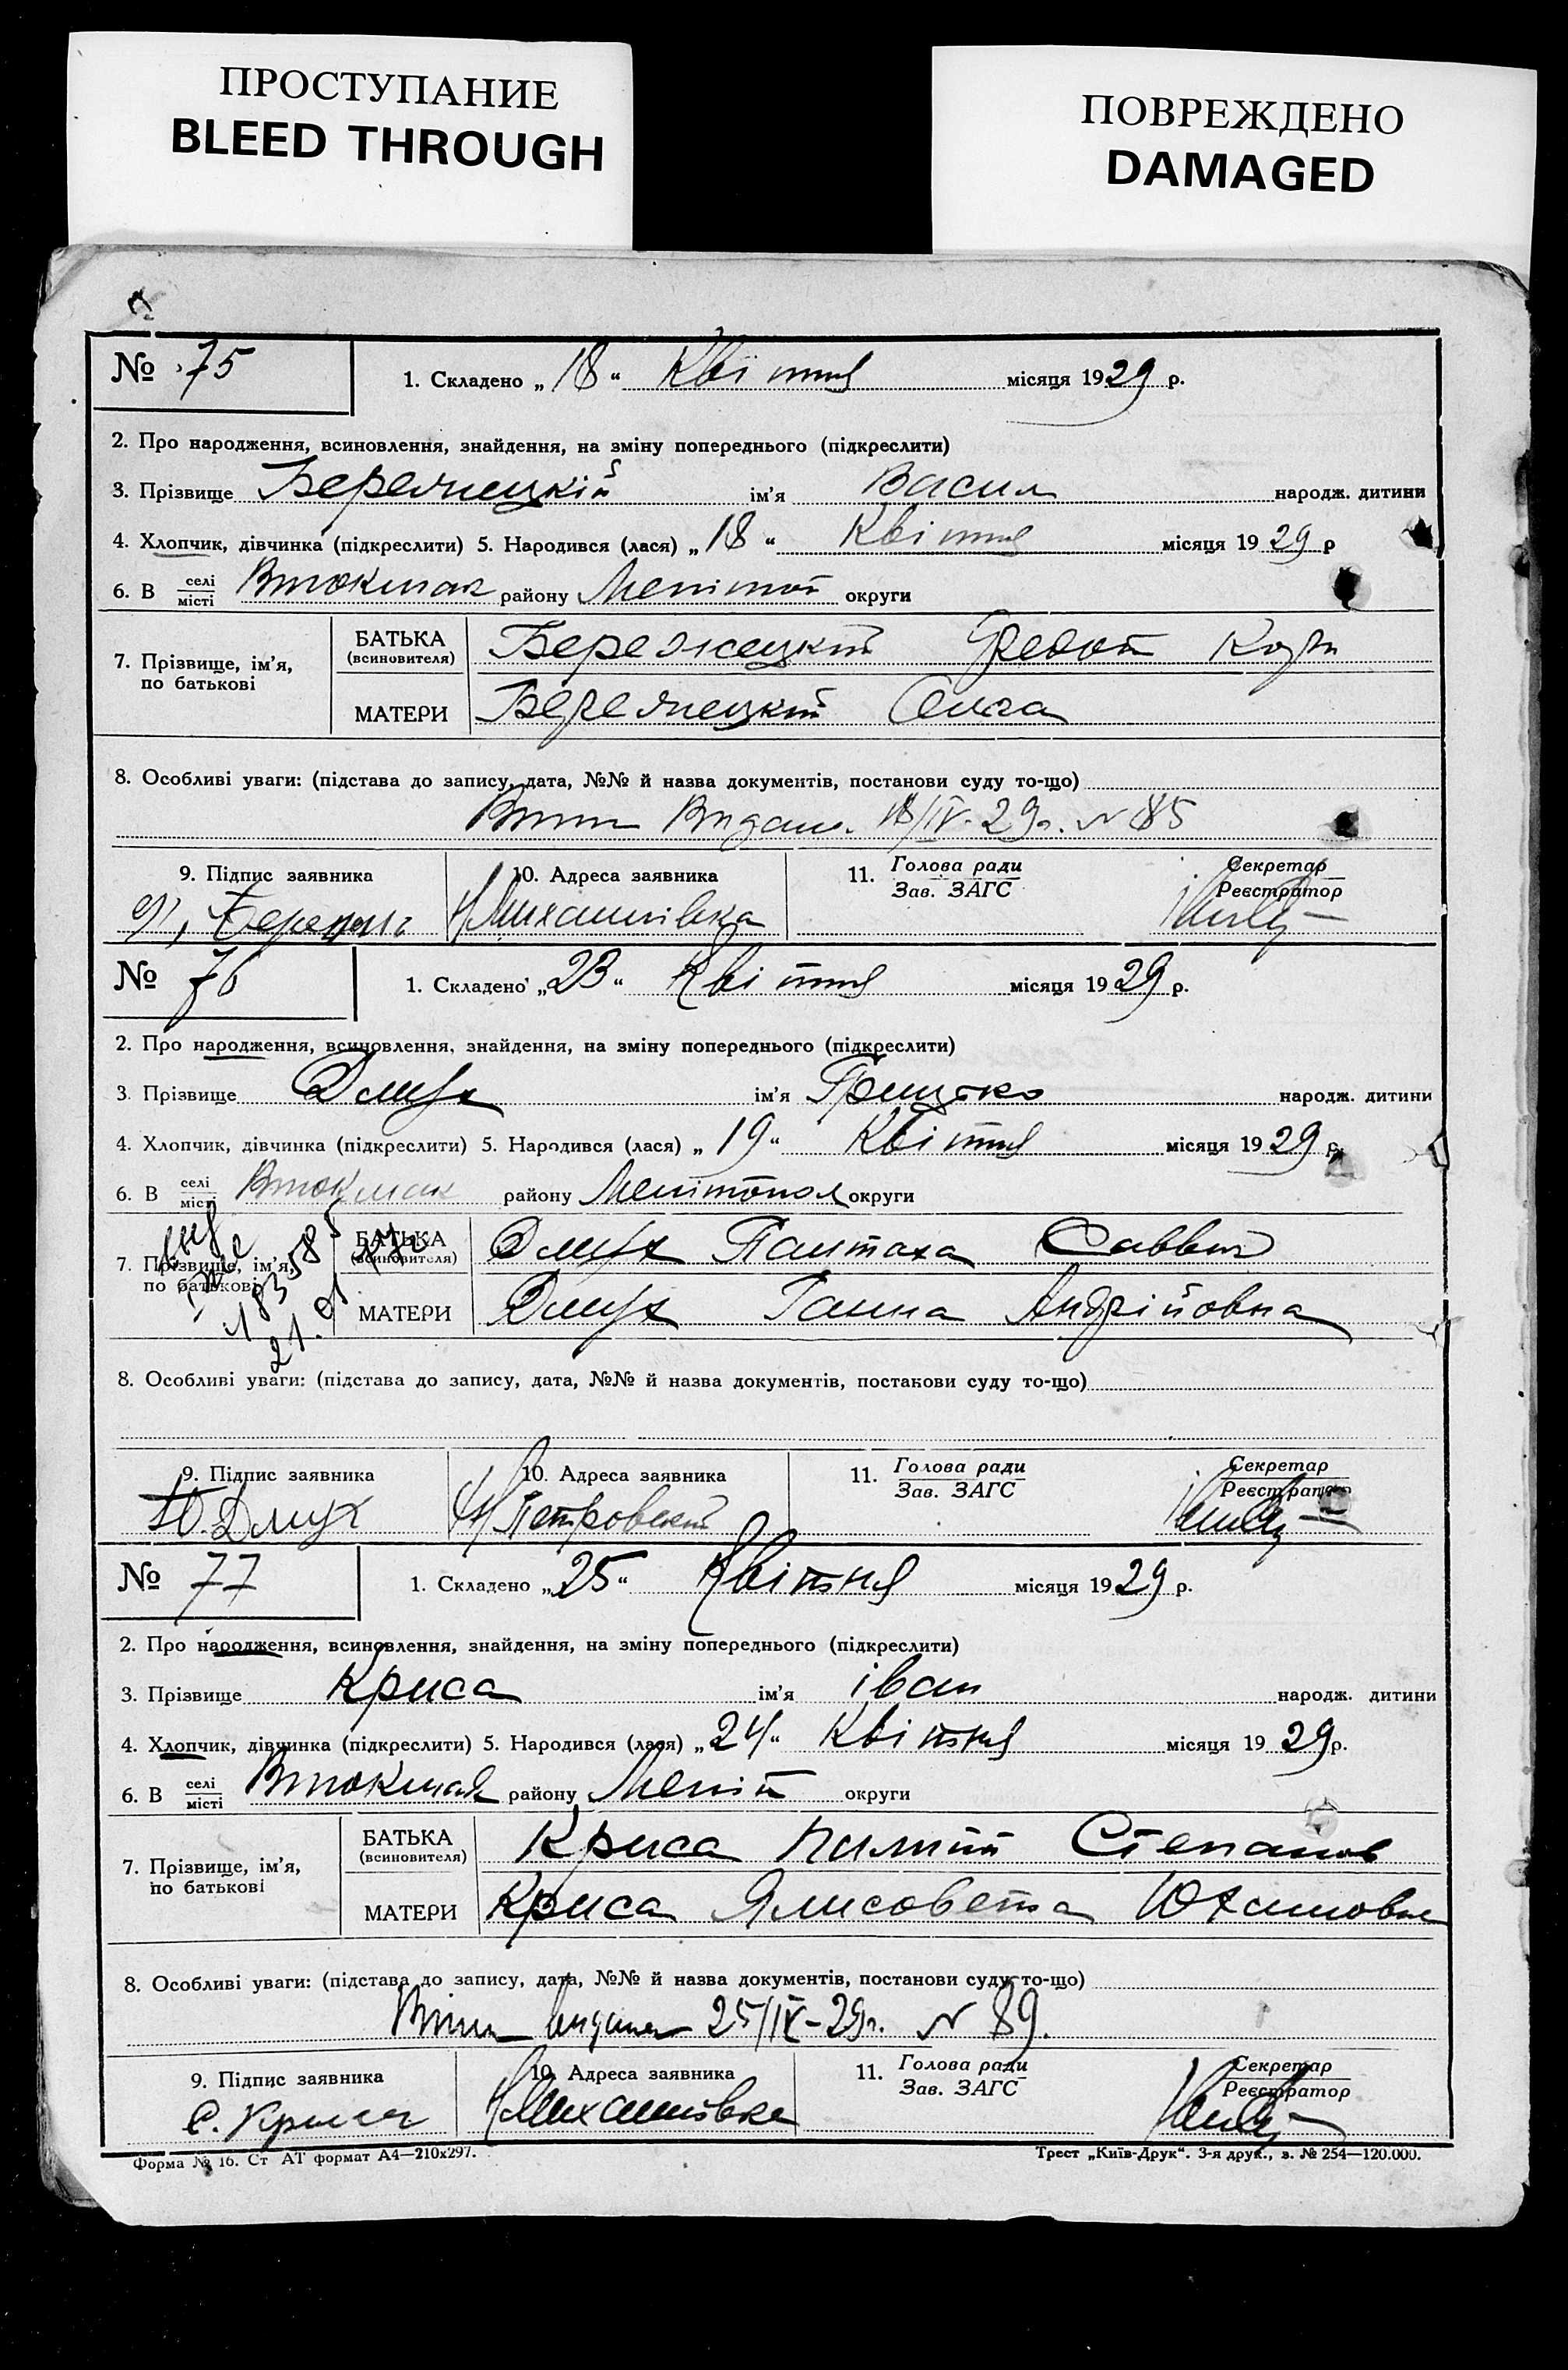 ПРОСТУПАНИЕ
BLEED THROUGH
ПОВРЕЖДЕНО
DAMAGED
№ 75 1. Складено „18“ Квітня місяця 1929 р.
2. Про народження, всиновлення, знайдення, на зміну попереднього (підкреслити)
3. Прізвище Бережецкій ім'я Васил народж. дитини
4. Хлопчик, дівчинка (підкреслити) 5. Народився (лася) „18“ Квітня місяця 1929 р
6. В селі місті Втокмак району Меліт округи
7. Прізвище, ім'я, по батькові
БАТЬКА (всиновителя) Бережецкий
МАТЕРИ Бережецкий
8. Особливі уваги: (підстава до запису, дата, №№ й назва документів, постанови суду то-що)
18/IV-29р. N 85
9. Підпис заявника 10. Адреса заявника 11. Голова ради Зав. ЗАГС Секретар Реєстратор
Михайлівка
№ 76 1. Складено „23“ Квітня місяця 1929 р.
2. Про народження, всиновлення, знайдення, на зміну попереднього (підкреслити)
3. Прізвище Дмух ім'я Грицько народж. дитини
4. Хлопчик, дівчинка (підкреслити) 5. Народився (лася) „19“ Квітня місяця 1929 р.
6. В селі місті Втокмак району Мелітопол округи
7. Прізвище, ім'я, по батькові
БАТЬКА (всиновителя) Дмух Саввич
МАТЕРИ Дмух Ганна Андрійовна
8. Особливі уваги: (підстава до запису, дата, №№ й назва документів, постанови суду то-що)
9. Підпис заявника 10. Адреса заявника 11. Голова ради Зав. ЗАГС Секретар Реєстратор
Дмух
№ 77 1. Складено „25“ Квітня місяця 1929 р.
2. Про народження, всиновлення, знайдення, на зміну попереднього (підкреслити)
3. Прізвище Криса ім'я іван народж. дитини
4. Хлопчик, дівчинка (підкреслити) 5. Народився (лася) „24“ Квітня місяця 1929 р.
6. В селі місті Втокмак району Меліт округи
7. Прізвище, ім'я, по батькові
БАТЬКА (всиновителя) Криса Пилип Степанов
МАТЕРИ Криса Ялисовета Юхимовна
8. Особливі уваги: (підстава до запису, дата, №№ й назва документів, постанови суду то-що)
25/IV-29р. N 89.
9. Підпис заявника 10. Адреса заявника 11. Голова ради Зав. ЗАГС Секретар Реєстратор
Михайлівка
Форма № 16. Ст АТ формат А4—210х297. Трест „Київ-Друк“. 3-я друк., з. № 254—120.000.